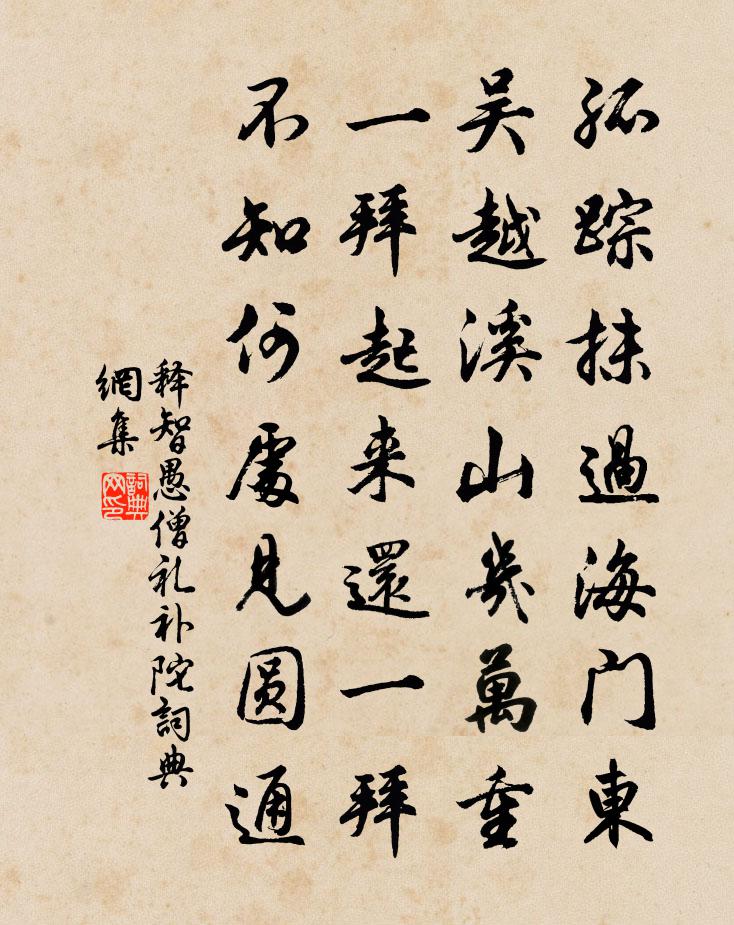 孤踪抹過海门東
吴越溪山幾萬重
一拜起来還一拜
不知何處見圆通
释智愚僧礼补陀詞典
網集
詞典
网印